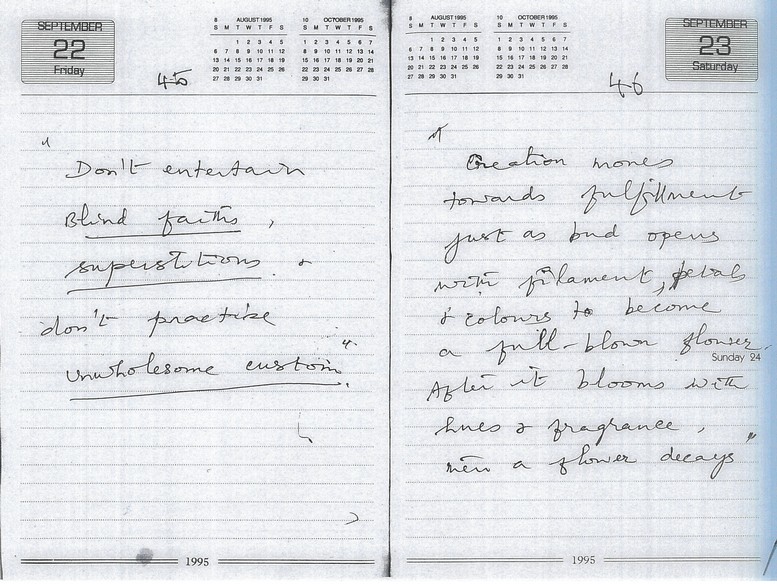 SEPTEMBER
22
Friday
8 AUGUST 1995
S M T W T F S
1 2 3 4 5
6 7 8 9 10 11 12
13 14 15 16 17 18 19
20 21 22 23 24 25 26
27 28 29 30 31
10 OCTOBER 1995
S M T W T F S
1 2 3 4 5 6 7
8 9 10 11 12 13 14
15 16 17 18 19 20 21
22 23 24 25 26 27 28
29 30 31
45
"
Don't entertain
Blind faiths,
superstitions &
don't practise
unwholesome custom."
1995
8 AUGUST 1995
S M T W T F S
1 2 3 4 5
6 7 8 9 10 11 12
13 14 15 16 17 18 19
20 21 22 23 24 25 26
27 28 29 30 31
10 OCTOBER 1995
S M T W T F S
1 2 3 4 5 6 7
8 9 10 11 12 13 14
15 16 17 18 19 20 21
22 23 24 25 26 27 28
29 30 31
SEPTEMBER
23
Saturday
46
"
Creation moves
towards fulfillment
just as bud opens
with filament, petals
& colours to become
a full-blown flower.
Sunday 24
After it blooms with
hues & fragrance,
then a flower decays"
1995